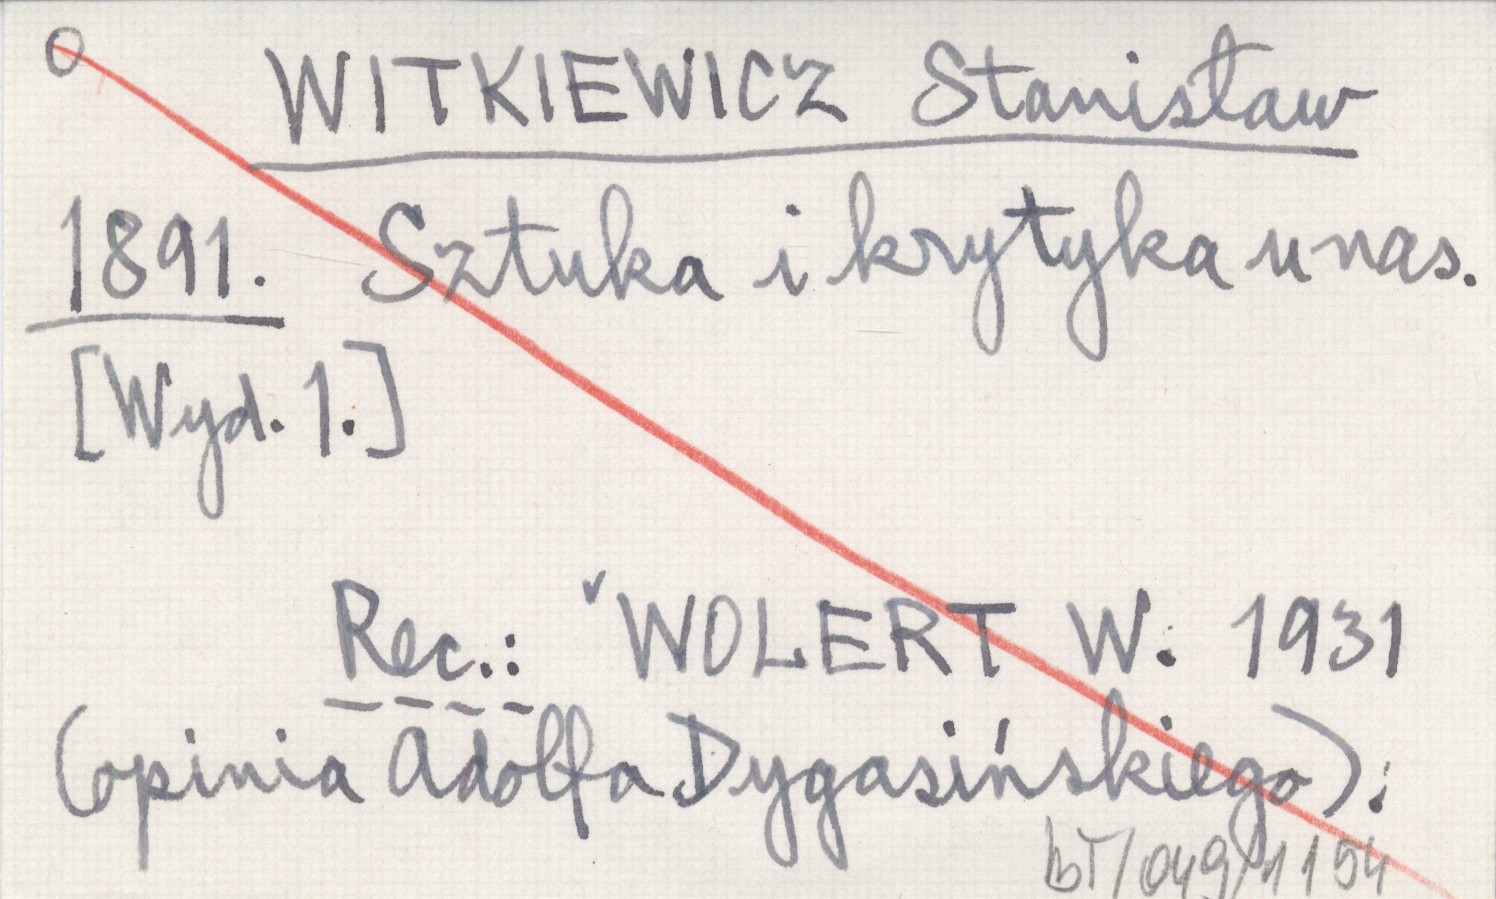 WITKIEWICZ Stanisław
1891. Sztuka i krytyka u nas.
[Wyd. 1.]
Rec.: WOLERT W. 1931
(opinia Adolfa Dygasińskiego);
bT/049/1154